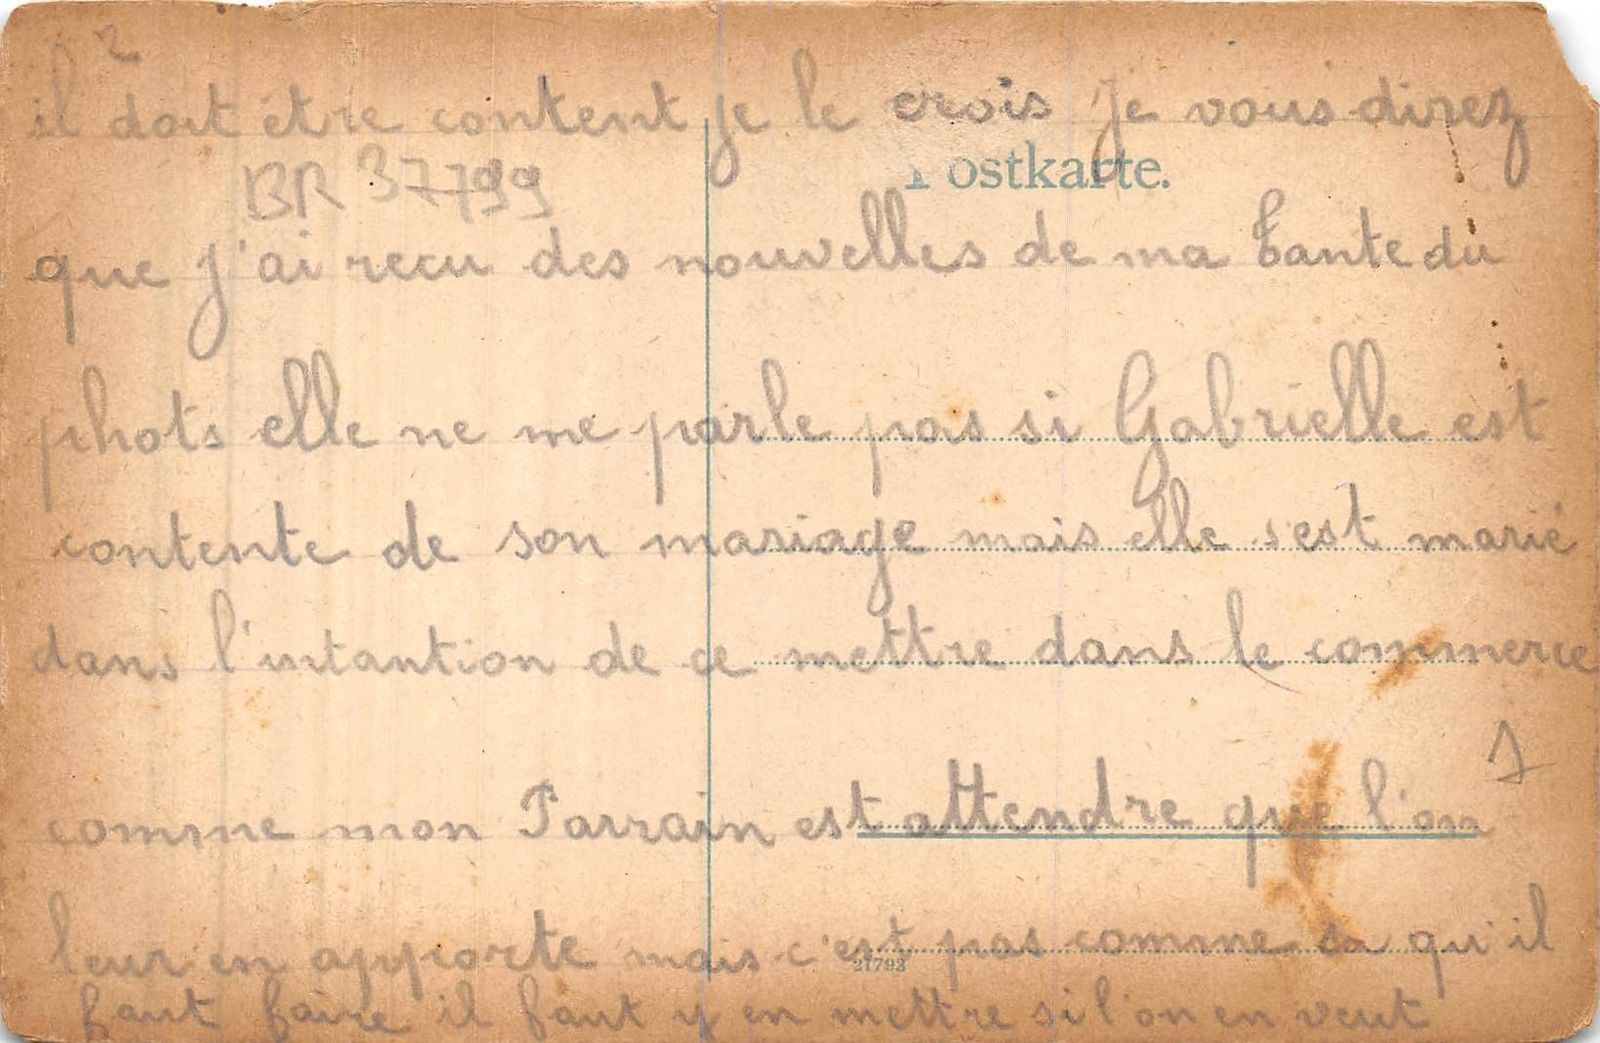 2
il doit être content je le crois Je vous direz
BR 37799
Postkarte.
que j'ai recu des nouvelles de ma tante du
phots elle ne me parle pas si Gabrielle est
contente de son mariage mais elle s'est marié
dans l'intantion de ce mettre dans le commerce
1
comme mon Parrain est attendre que l'on
leur en apporte mais c'est pas comme sa qu'il
21793
faut faire il faut y en mettre si l'on en veut